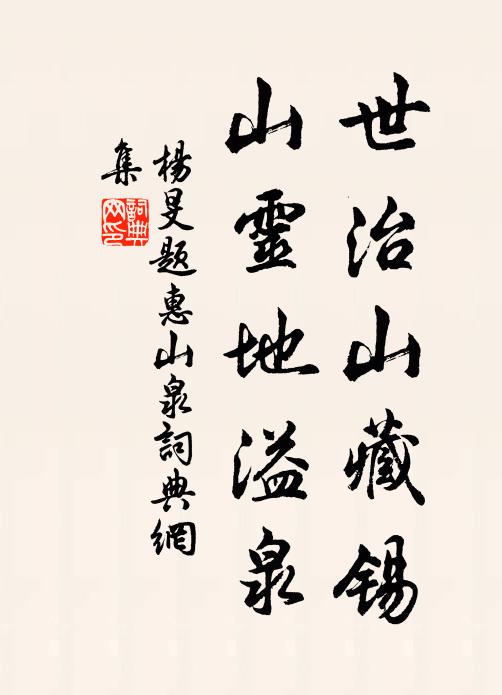 世治山藏錫
山靈地溢泉
楊旻題惠山泉詞典網
集
詞典
网印